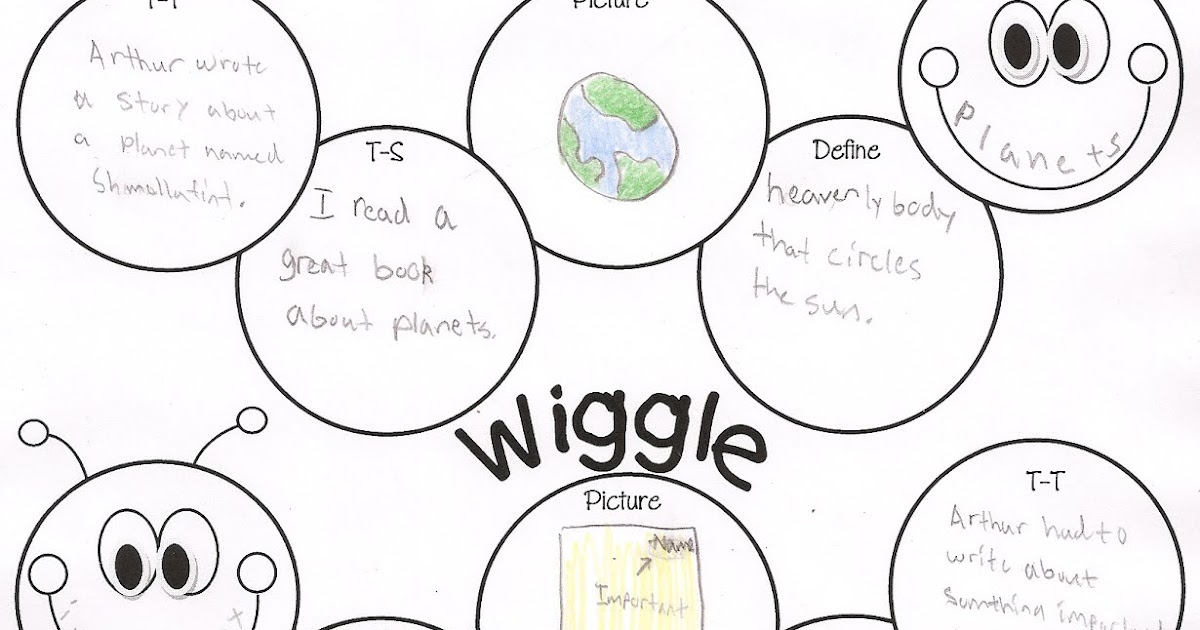 T-T
Arthur wrote
a story about
a planet named
Shmollafint.
T-S
I read a
great book
about planets.
Picture
Define
heavenly body
that circles
the sun.
Planets
Wiggle
Picture
Name
Important
T-T
Arthur had to
write about
sumthing important